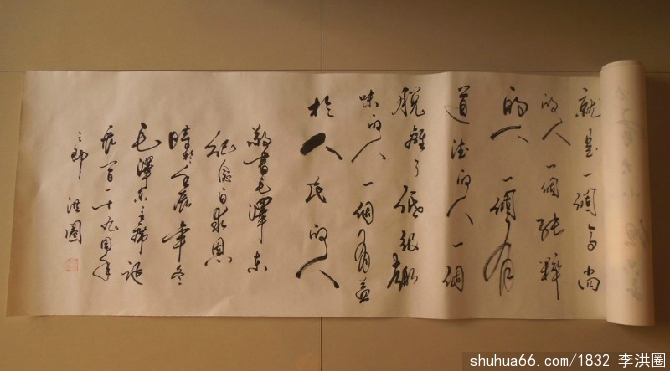 就是一個高尚
的人一個純粹
的人一個有
道德的人一個
脫離了低級趣
味的人一個有益
於人民的人
敬書毛澤東
紀念白求恩
時 年冬
毛澤東主席誕
辰百一十九周年
之 洪圈
shuhua66.com/1832 李洪圈